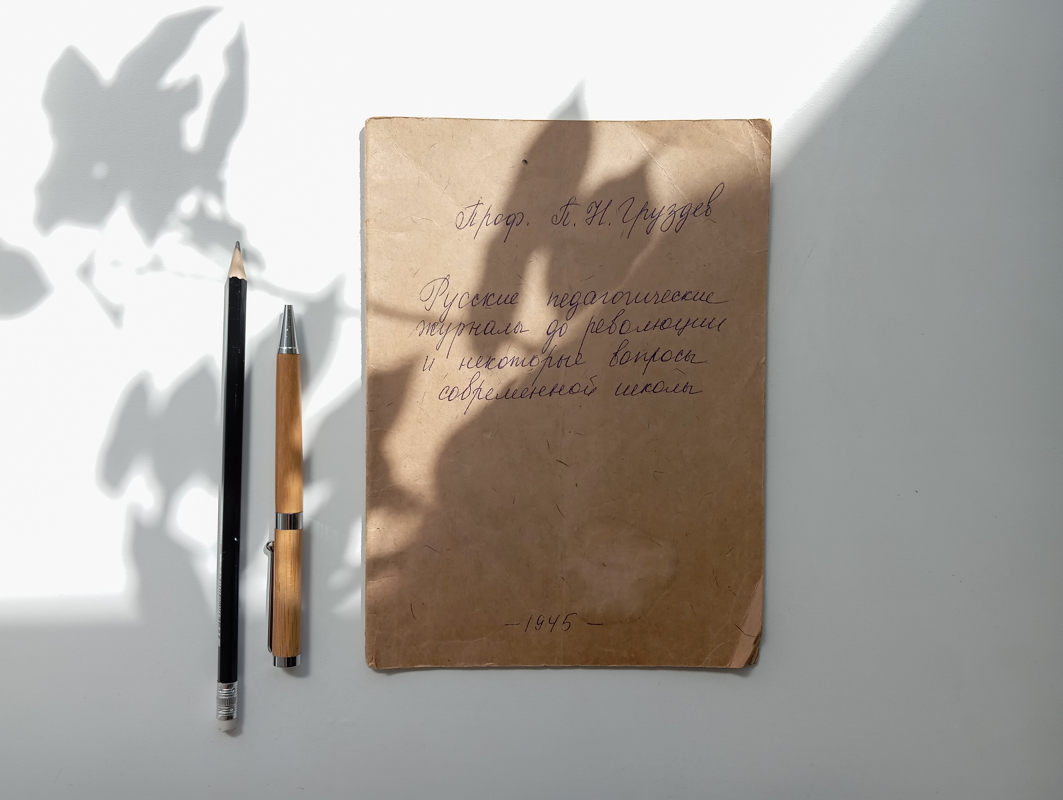 Проф. П. Н. Груздев
Русские педагогические
журналы до революции
и некоторые вопросы
современной школы
– 1945 –